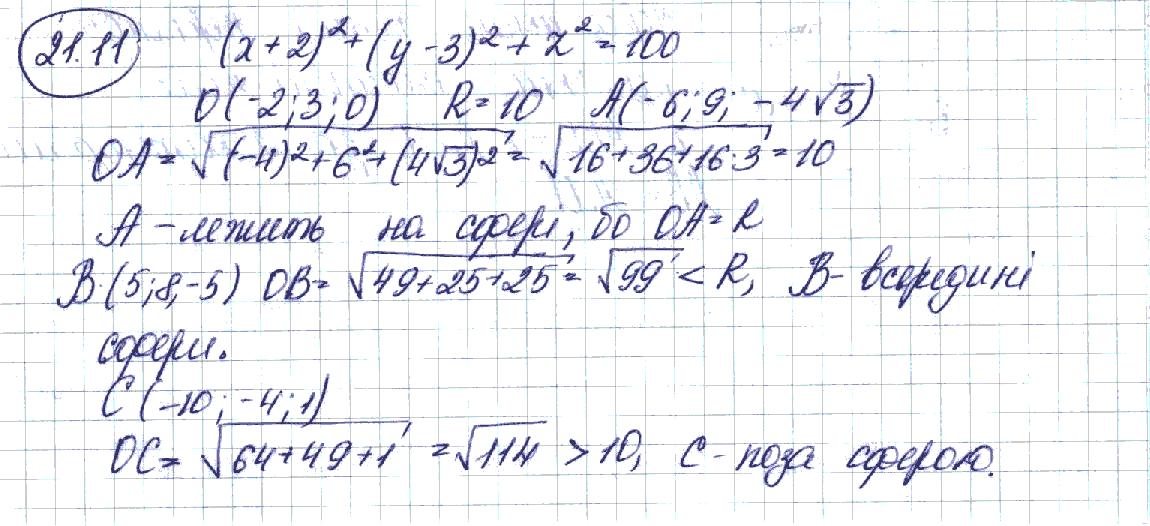 21.11 (x+2)²+(y-3)²+z²=100
O(-2;3;0) R=10 A(-6;9;-4√3)
OA=√(-4)²+6²+(4√3)²=√16+36+16·3=10
A - лежить на сфері, бо OA=R
B(5;8;-5) OB=√49+25+25=√99<R, B- всередині
сфери.
C(-10;-4;1)
OC=√64+49+1=√114>10, C-поза сферою.